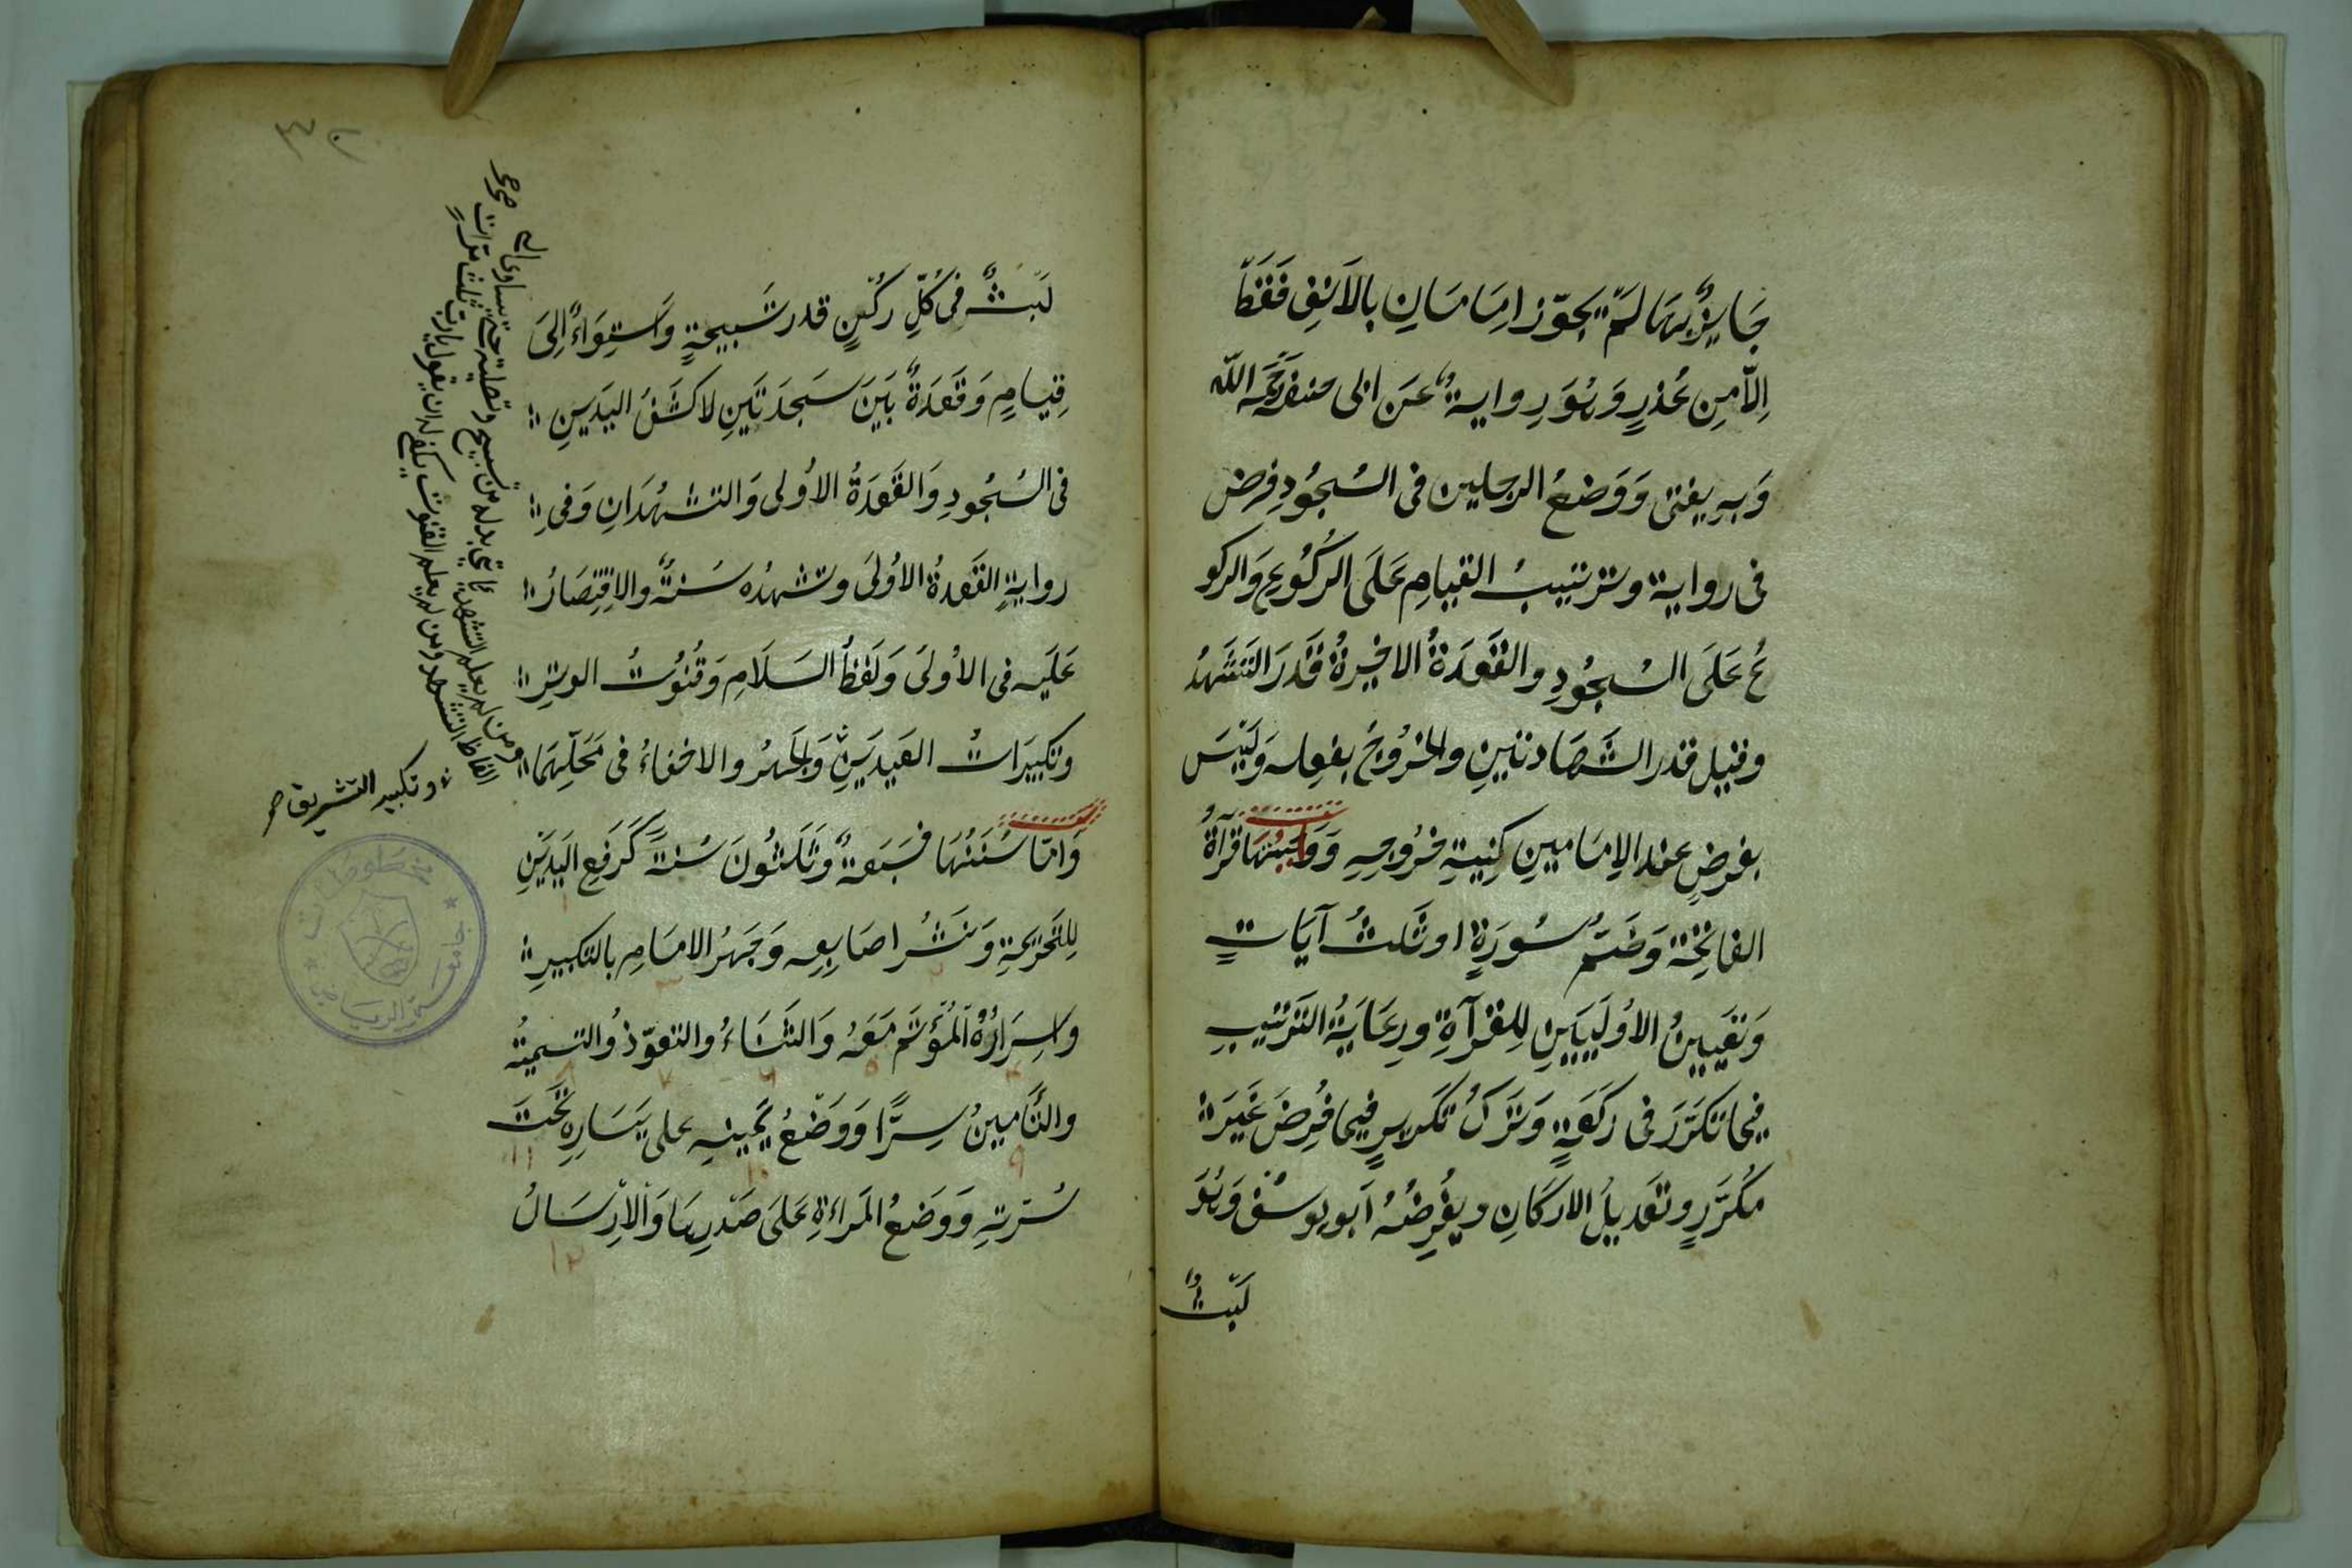 جَايِزٌ بِهَا لَمْ يُجَوِّز اِمَامَانِ بِالاَنْفِ فَقَطْ
اِلاَّ مِن عُذرٍ وَهُوَ رِوايةٌ عَن ابى حنفة رَحِمَه اللّه
وَبِهِ يفتى وَوَضعُ الرجلين فى السُجُودِ فرض
فى رواية وترتيبُ القيامِ عَلَى الرُكُوعِ وَالركو
عُ عَلَى السُجُودِ والقَعدَةُ الاخيرةُ قَدَرَ التَشَهُد
وقيل قدر الشَهَادتينِ والخُرُوجُ بفعِله وَلَيسَ
بفرضٍ عند الاِمَامينِ كنيةِ خروجِهِ وَوَاجبُتهَا قرأةُ
الفاتِحَة وَضَمُّ سُورَةٍ او ثَلثُ آيَاتٍ
وَتعَيينُ الاُولَيَيَنِ لِلقرآةِ ورِعَايَةُ التَرتيبِ
فيما تكَرَّرَ فى رَكعَةٍ وَتَركُ تكريرٍ فيما فُرِضَ غَيَرَ
مكَرَّرٍ وتعَديلُ الاركَانِ ويفُرِضُهُ اَبو يوسُف وَهُوَ
لَبثٌ
٣٢
لَبثٌ فى كُلِّ ركُنٍ قدر تَسَبيحةٍ وَاستِوَاءٌ اِلىَ
قِيامٍ وَقَعدَةٌ بَيَن سَجدَتَينِ لا كَشفُ اليَدَينِ
فى السُجُودِ وَالقَعَدَةُ الاُولى وَالتشهُدَانِ وَفى
روايةٍ القَعدةُ الاُولىَ وتشهدُه سُنةٌ والاِقتِصَارُ
عَلَيه فى الاُولىَ وَلَفظُ السَلاَمِ وَقُنوُتُ الوترِ
وتكبيَراتُ العيدَينِ وَالجَهرُ والاخفاءُ فى مَحَلّهِمَا
وَامّا سُنَنُهَا فسَبَعةٌ وَثَلثُونَ سُنةً كَرَفعِ اليَدَينِ
لِلتحَريمَةِ وَنَشرُ اصَابِعِه وَجَهرُ الامَامِ بالتكبيرِ
وَاسِرَارُهُ المُؤتَم مَعَهُ وَالثَنَاءُ والتعوّذُ والتسميةُ
والتَامينُ سِرًّا وَوَضعُ يَمينِهِ على يَسَارِهِ تَحَتَ
سُرّتِهِ وَوَضعُ المَراءةِ عَلىَ صَدْرِهَا وَاْلاْرِسَالُ
ومن لم يعلم التشهد يأتى بدله من تسبيح وتصلية حتى يساوى اليه
الفاظ التشهد ومن لم يعلم القنوت يكفى له ان يقول يارب ثلث مرّات صح
وتكبير التشريق صح
جامعة الرياض
مخطوطات